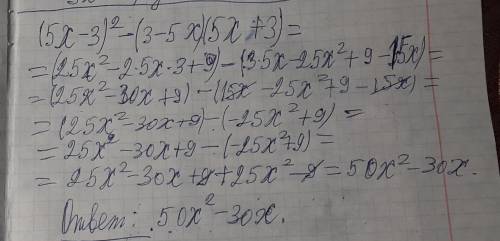 (5x-3)²-(3-5x)(5x+3)=
=(25x²-2·5x·3+9)-(3·5x-25x²+9-15x)=
=(25x²-30x+9)-(15x-25x²+9-15x)=
=(25x²-30x+9)-(-25x²+9)=
=25x²-30x+9-(-25x²+9)=
=25x²-30x+9+25x²-9=50x²-30x.
Ответ: 50x²-30x.